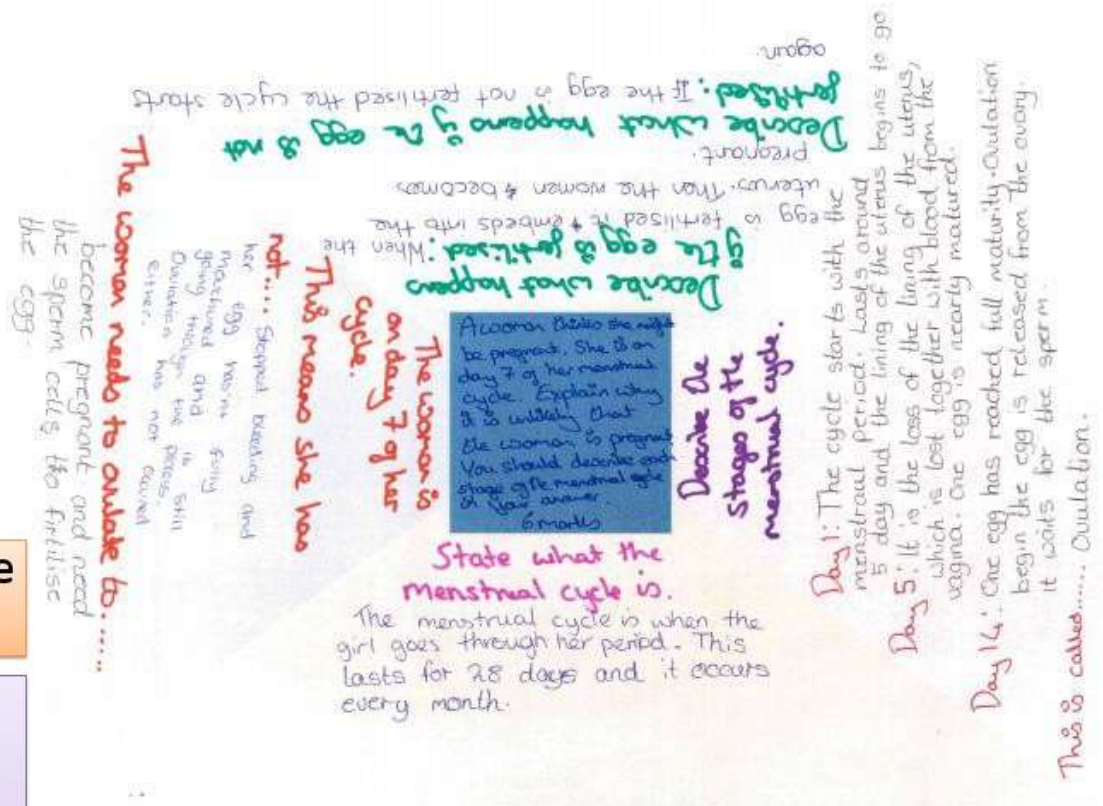 A woman thinks she might
be pregnant. She is on
day 7 of her menstrual
cycle. Explain why
it is unlikely that
the woman is pregnant
You should describe each
stage of the menstrual cycle
in your answer
6 marks
State what the
menstrual cycle is.
The menstrual cycle is when the
girl goes through her period. This
lasts for 28 days and it occurs
every month.
Describe the
stages of the
menstrual cycle.
Day 1: The cycle starts with the
menstrual period. Lasts around
5 day and the lining of the uterus begins to go
Day 5: It is the loss of the lining of the uterus,
which is lost together with blood from the
vagina. One egg is nearly matured.
Day 14: One egg has reached full maturity-Ovulation
begin the egg is released from the ovary.
It waits for the sperm.
This is called..... Ovulation.
Describe what happens
if the egg is fertilised: When the
egg is fertilised it embeds into the
uterus. Then the women becomes
pregnant.
Describe what happens if the egg is not
fertilised: If the egg is not fertilised the cycle starts
again.
The woman is
on day 7 of her
cycle.
This means she has
not.... Stopped bleeding and
her egg hasn't fully
matured and is still
going through the process.
Ovulation has not occured
either.
The woman needs to ovulate to......
become pregnant and need
the sperm cells to firtilise
the egg.
e